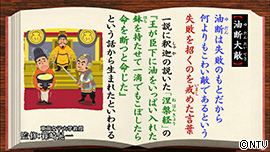 【油断大敵】
油断は失敗のもとだから
何よりもこわい敵であるという
失敗を招くのを戒めた言葉
一説に釈迦の説いた『涅槃経』の
「王が臣下に油をいっぱい入れた
鉢を持たせて一滴でもこぼしたら
命を断つと命じた」
という話から生まれたといわれる
©NTV